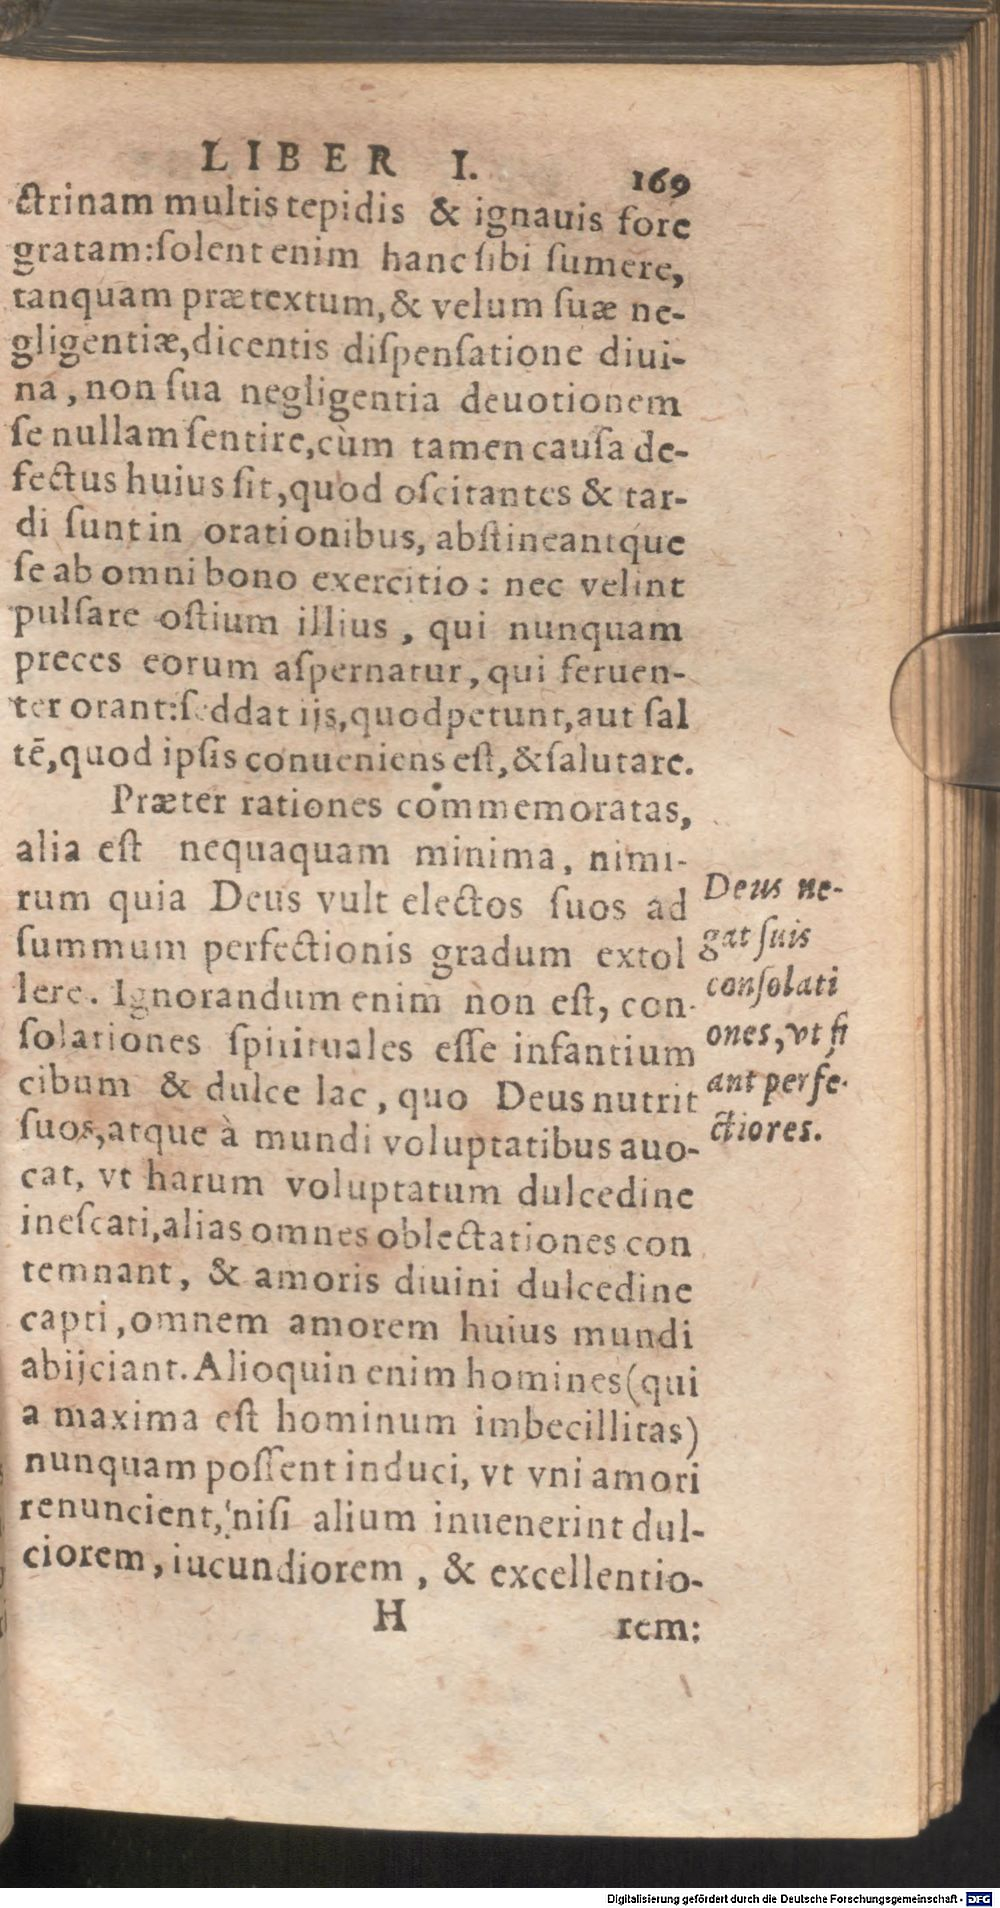 LIBER I. 169
ctrinam multis tepidis & ignauis fore
gratam:ſolent enim hanc ſibi ſumere,
tanquam prætextum, & velum ſuæ ne-
gligentiæ,dicentis diſpenſatione diui-
na, non ſua negligentia deuotionem
ſe nullam ſentire,cùm tamen cauſa de-
fectus huius ſit,quod oſcitantes & tar-
di ſunt in orationibus, abſtineantque
ſe ab omni bono exercitio: nec velint
pulſare oſtium illius, qui nunquam
preces eorum aſpernatur, qui feruen-
ter orant:ſed dat ijs,quod petunt,aut ſal
tē,quod ipſis conueniens eſt,& ſalutare.
Præter rationes commemoratas,
alia eſt nequaquam minima, nimi-
rum quia Deus vult electos ſuos ad
ſummum perfectionis gradum extol
lere. Ignorandum enim non eſt, con-
ſolationes ſpirituales eſſe infantium
cibum & dulce lac, quo Deus nutrit
ſuos,atque à mundi voluptatibus auo-
cat, vt harum voluptatum dulcedine
ineſcati,alias omnes oblectationes con
temnant, & amoris diuini dulcedine
capti,omnem amorem huius mundi
abijciant. Alioquin enim homines (qui
a maxima eſt hominum imbecillitas)
nunquam poſſent induci, vt vni amori
renuncient, niſi alium inuenerint dul-
ciorem, iucundiorem, & excellentio-
H rem:
Deus ne-
gat ſuis
conſolati
ones, vt fi
ant perfe-
ctiores.
Digitalisierung gefördert durch die Deutsche Forschungsgemeinschaft - DFG